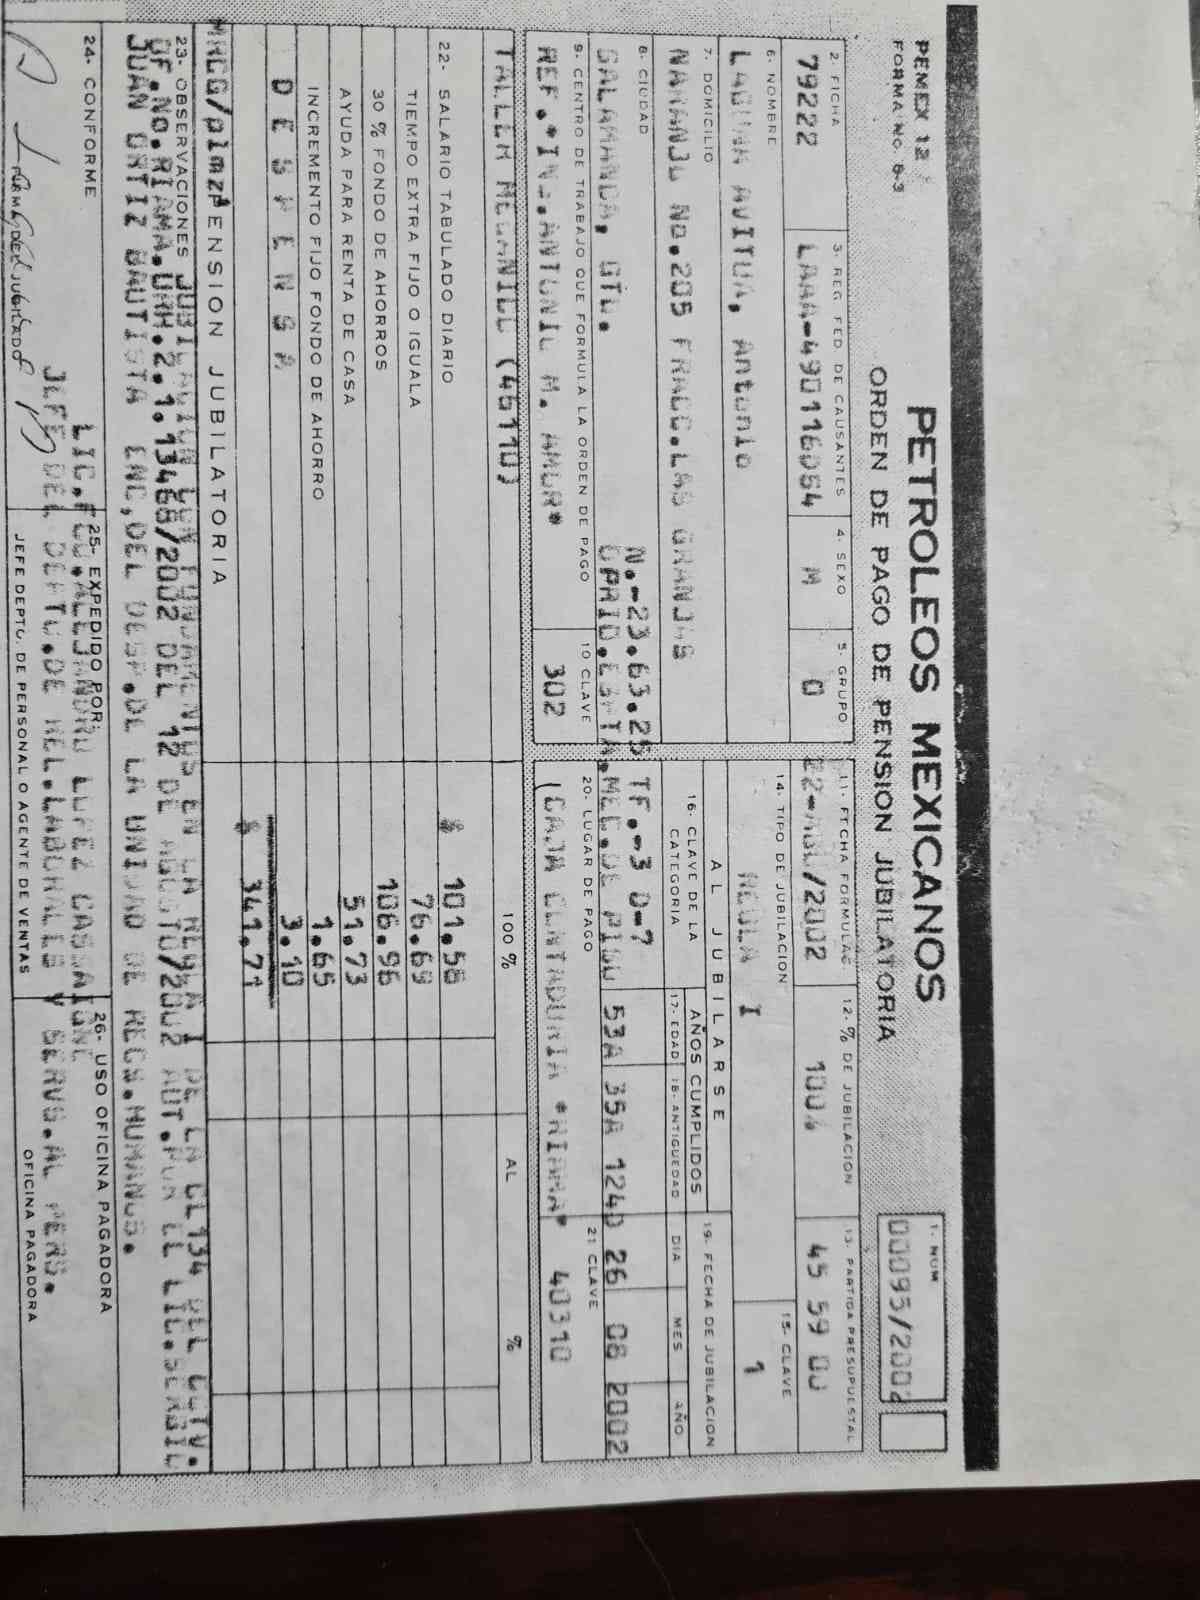 PEMEX 12
FORMA No. 6-3
PETROLEOS MEXICANOS
ORDEN DE PAGO DE PENSION JUBILATORIA
1- NUM
000095/2002
2. FICHA
79222
3. REG FED. DE CAUSANTES
LAAA-490116054
4. SEXO
M
5. GRUPO
0
11- FECHA FORMULAC
22-AGL/2002
12- % DE JUBILACION
100%
13- PARTIDA PRESUPUESTAL
45 59 00
6- NOMBRE
LAGUNA AVITUA, Antonio
14- TIPO DE JUBILACION
REGLA I
15- CLAVE
1
7. DOMICILIO
NARANJO No.205 FRACC.LAS GRANJAS
AL JUBILARSE
16- CLAVE DE LA CATEGORIA
AÑOS CUMPLIDOS
17- EDAD
18- ANTIGUEDAD
19- FECHA DE JUBILACION
DIA MES AÑO
8- CIUDAD
SALAMANCA, GTO.
N.-23.63.25 TF.-3 D-7
OPRIO.ESPTA.MEC.DE PISO 53A 35A 124D 26 08 2002
9- CENTRO DE TRABAJO QUE FORMULA LA ORDEN DE PAGO
REF.*ING.ANTONIO M. AMOR*
10 CLAVE
302
20- LUGAR DE PAGO
(CAJA CONTADURIA *RIAMA*
21 CLAVE
40310
TALLER MECANICO (45110)
100 % AL %
22- SALARIO TABULADO DIARIO $ 101.58
TIEMPO EXTRA FIJO O IGUALA 76.69
30 % FONDO DE AHORROS 106.96
AYUDA PARA RENTA DE CASA 51.73
INCREMENTO FIJO FONDO DE AHORRO 1.65
DESPENSA 3.10
$ 341.71
MRCG/plmzp PENSION JUBILATORIA
23- OBSERVACIONES JUBILACION CON FUNDAMENTOS EN LA REGLA I DE LA CL 134 DEL CCTV.
OF.No.RIAMA.URH.2.1.13468/2002 DEL 12 DE AGOSTO/2002 AUT.POR EL LIC.SERGIO
JUAN ORTIZ BAUTISTA ENC.DEL DESP.DE LA UNIDAD DE RECS.HUMANOS.
24- CONFORME
25- EXPEDIDO POR:
26- USO OFICINA PAGADORA
LIC.FCO.ALEJANDRO LOPEZ CASSAIGNE
JEFE DEL DEPTO.DE REL.LABORALES Y SERVS.AL PERS.
FIRMA DEL JUBILADO
JEFE DEPTO. DE PERSONAL O AGENTE DE VENTAS
OFICINA PAGADORA